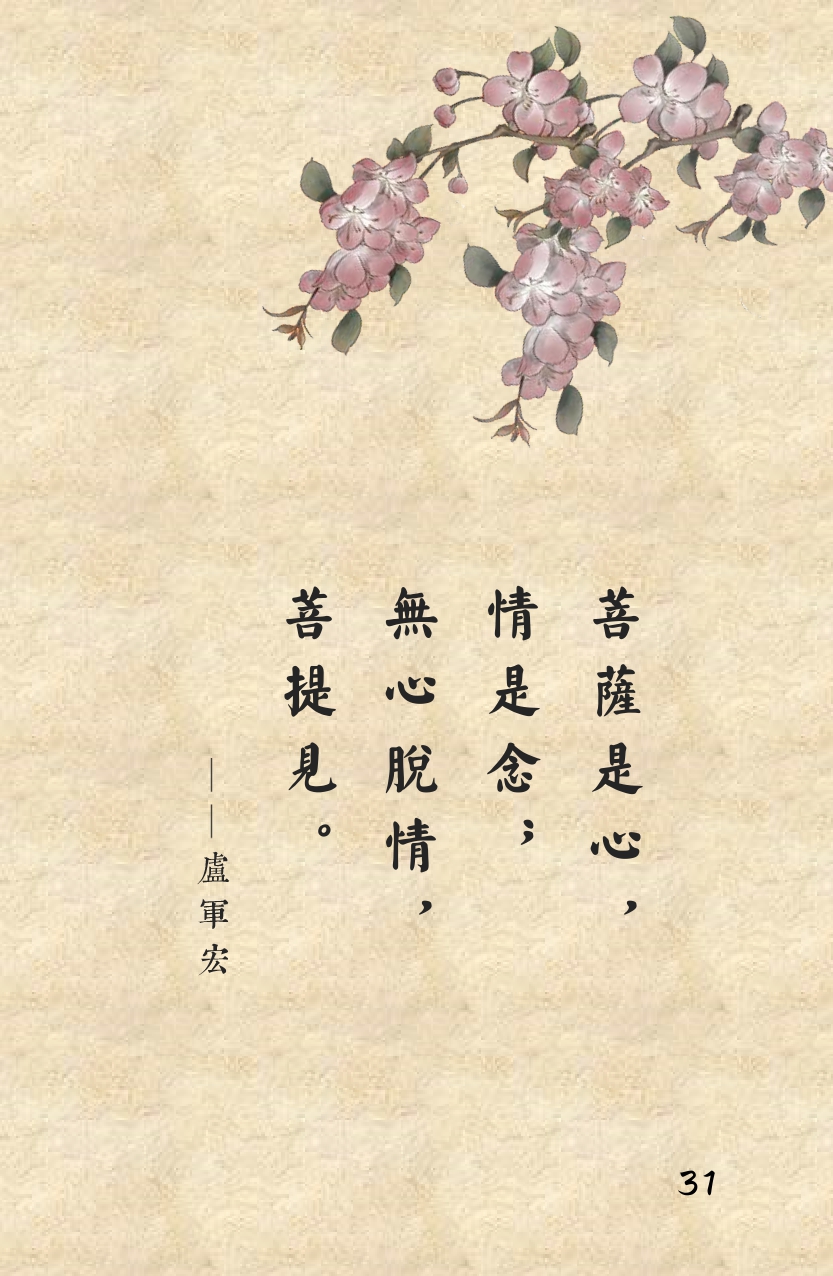 菩薩是心，
情是念；
無心脫情，
菩提見。
——盧軍宏
31